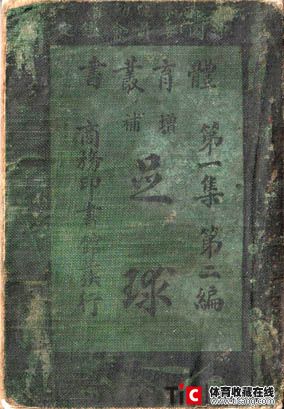 體育叢書
第一集 第二編
增補
足球
商務印書館發行
TiC 体育收藏在线